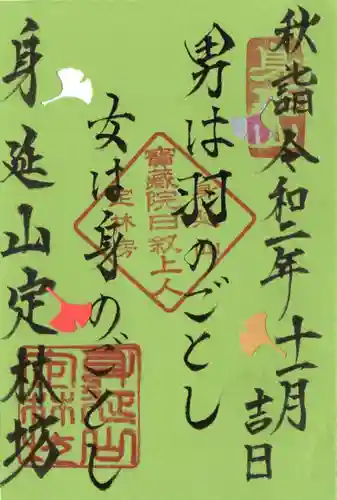 秋詣 令和二年十一月吉日
男は羽のごとし
女は身のごとし
身延山定林坊
寳蔵院日叙上人